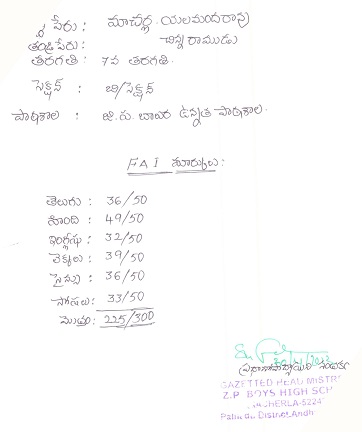 పేరు: మాచర్ల. యలమందరావు
తండ్రిపేరు: చిన్న రాముడు
తరగతి: 7వ తరగతి.
సెక్షన్ : బి/సెక్షన్
పాఠశాల : జి.ప. బాలుర ఉన్నత పాఠశాల.
FA I మార్కులు:
తెలుగు: 36/50
హింది: 49/50
ఇంగ్లీషు: 32/50
లెక్కలు: 39/50
సైన్సు: 36/50
సోషలు: 33/50
మొత్తం: 225/300
GAZETTED HEAD MISTR
Z.P. BOYS HIGH SCH
Dist Andh